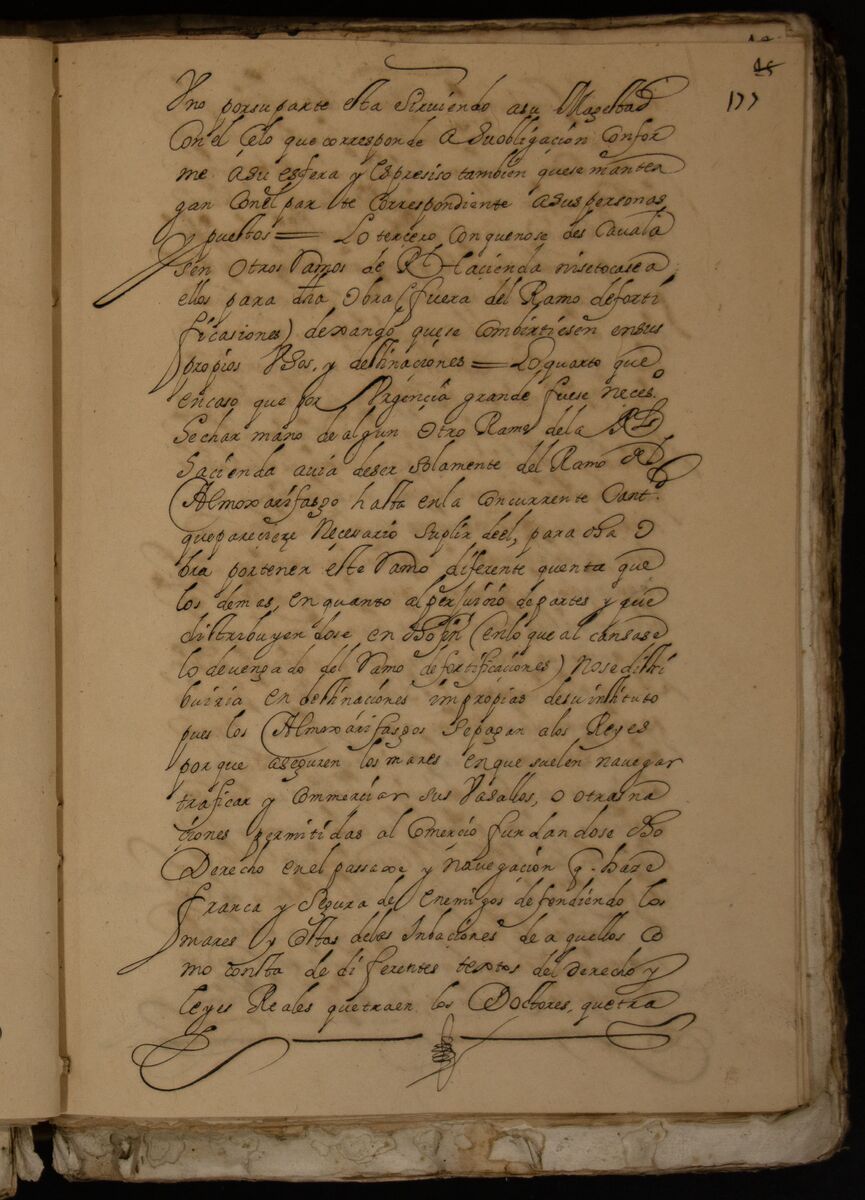 45
177
Vno por su parte esta Siruiendo asu Magestad
Con el Celo que corresponde a su obligaçion Confor
me à su esfera y es presiso tambien que se manten
gan Con el par te Correspondiente a sus personas
y puestos = Lo tercero Con que no se des Cavala
sen otros Ramos de Rl Hacienda ni se tocase a
ellos para dha Obra (fuera del Ramo de forti
ficasiones) dexando que se Combirtiesen en sus
propios Vsos, y destinaciones = Lo quarto que
en caso que por Vrgencia grande fuese neceso
hechar mano de algun otro Ramo de la Rl
hacienda avia de ser solamente del Ramo de
Almoxarifasgo hasta en la Concurrente Cantd
que pareciere Necesario suplir de el, para dha O
bra por tener este Ramo diferente quenta que
los demas, en quanto al perjuicio de partes y que
distribuyendose en dho fin (en lo que al cansase
lo devengado del Ramo de fortificaciones) no se distri
buiria en destinaciones impropias de su instituto
pues los Almoxarifasgos se pagan a los Reyes
por que aseguren los mares en que suelen navegar
traficar y Commerciar sus Vasallos, o otras na
ciones permitidas al Comercio fundandose dho
Derecho en el passaxe y navegacion q. haze
franca y Segura de enemigos defendiendo los
mares y Costas de las Inbaciones de aquellos Co
mo consta de diferentes textos del derecho y
leyes Reales que traen los Doctores, que tra